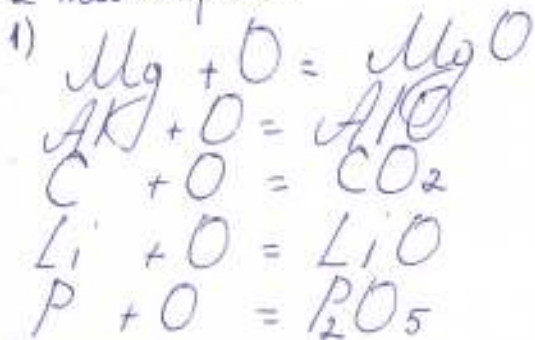 1)
Mg + O = MgO
Al + O = AlO
C + O = CO₂
Li + O = LiO
P + O = P₂O₅